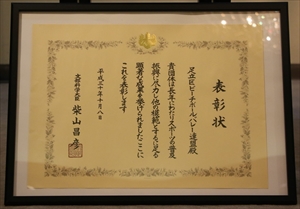 表彰状
足立区ビーチボールバレー連盟殿
貴団体は長年にわたりスポーツの普及
振興に尽力し他の模範とするに足る
顕著な成果を挙げられましたここに
これを表彰します
平成三十年十月八日
文部科学大臣 柴山昌彦